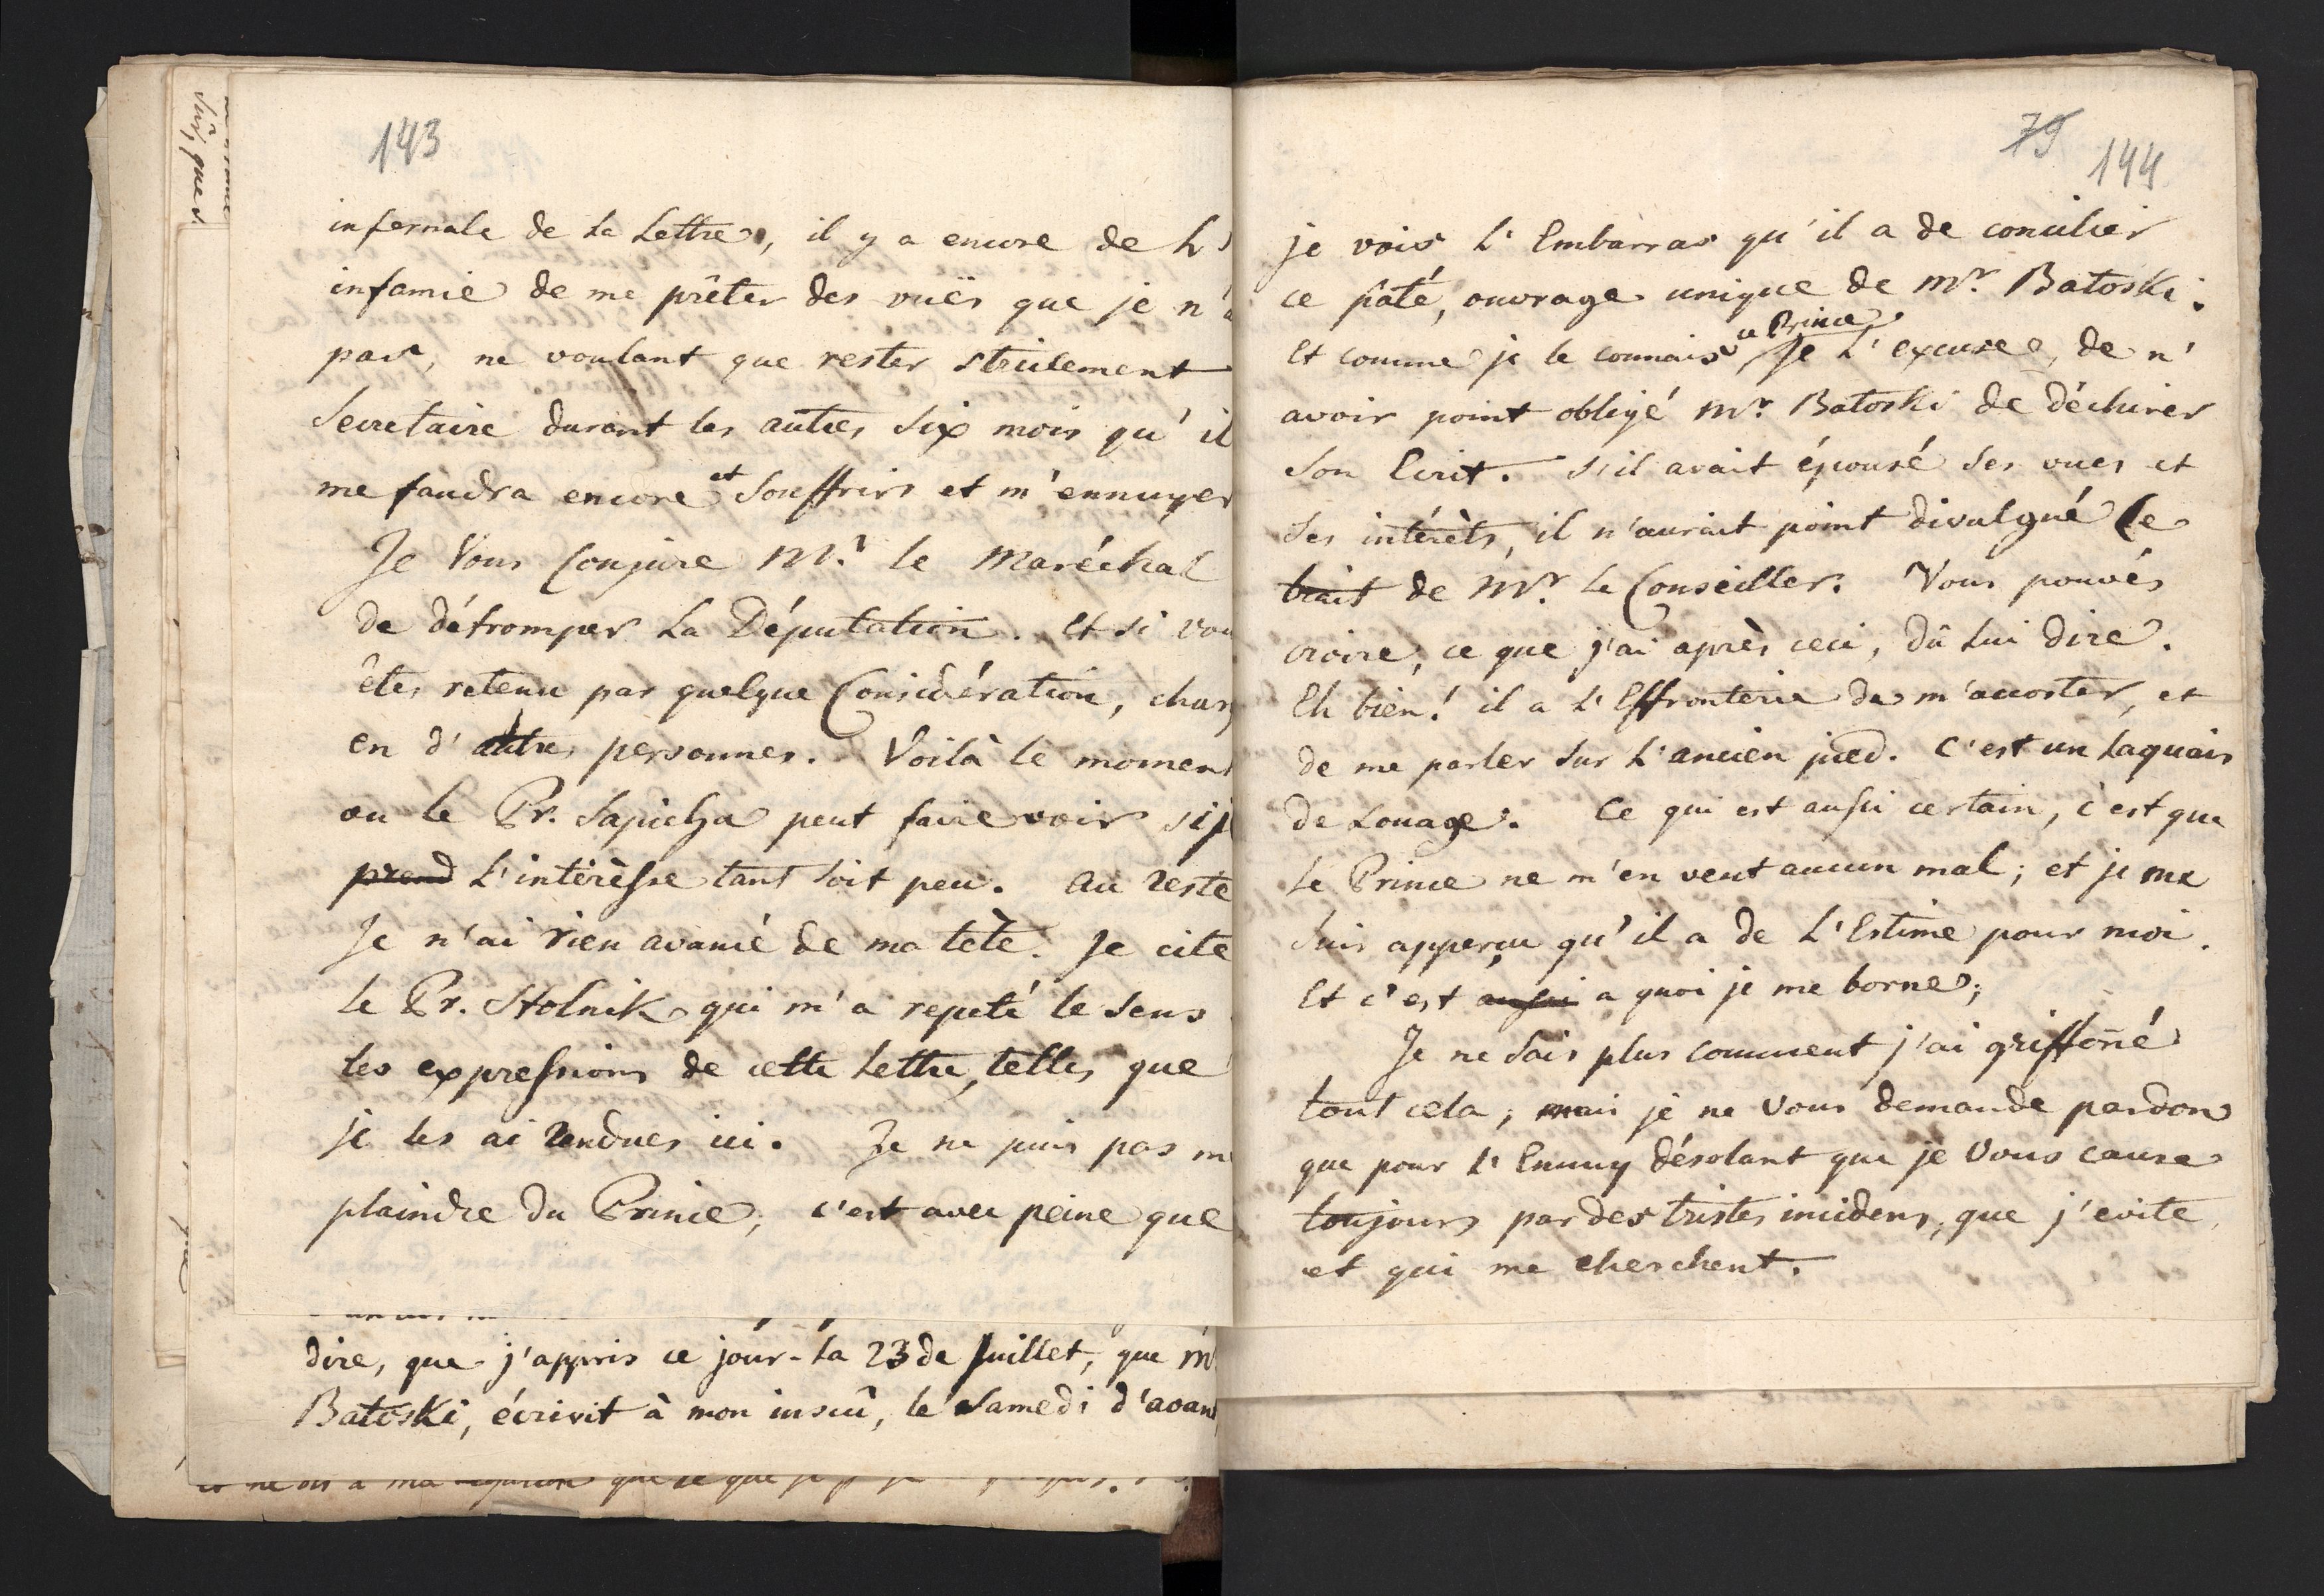 143
infernale de la Lettre, il y a encore de L'
infamie de me prêter des vuës que je n'a
pas, ne voulant que rester strictement
Secretaire durant les autres six mois qu'il
me faudra encore et souffrir et m'ennuyer
Je Vous Conjure Mr. le Maréchal
de détromper la Députation. Et si vou
êtes retenu par quelque Considération, charg
en d'autres personnes. Voilà le momen
ou le Pr. Sapieha peut faire voir si j
prend L'intéresse tant soit peu. Au reste
Je n'ai rien avancé de ma tête. Je cite
le Pr. Stolnik qui m'a repeté le sens
les expressions de cette Lettre, telles que
je les ai rendues ici. Je ne puis pas m
plaindre du Prince; c'est avec peine que
dire, que j'appris ce jour-la 23 de Juillet, que M
Batoski, écrivit à mon insçû, le Samedi d'avan
sûr, que s
79 144
je vois L'Embarras qu'il a de concilier
ce pâté, ouvrage unique de Mr. Batoski.
Et comme je le connais ce Prince, Je L'excuse, de n'
avoir point obligé Mr. Batoski de déchirer
son Ecrit. S'il avait épousé ses vues et
ses intérêts, il n'aurait point divulgué Ce
trait de Mr. le Conseiller. Vous pouvés
croire, ce que j'ai après ceci, dû lui dire.
Eh bien! il a L'Effronterie de m'accoster, et
de me parler sur L'ancien pied. C'est un Laquais
de Louage. Ce qui est aussi certain, c'est que
le Prince ne m'en veut aucun mal; et je me
suis apperçu qu'il a de L'Estime pour moi.
Et c'est aussi a quoi je me borne;
Je ne sais plus comment j'ai griffoñé
tout cela; mais je ne Vous demande pardon
que pour L'Ennuy désolant que je Vous cause
toujours par des tristes incidens, que j'evite,
et qui me cherchent.